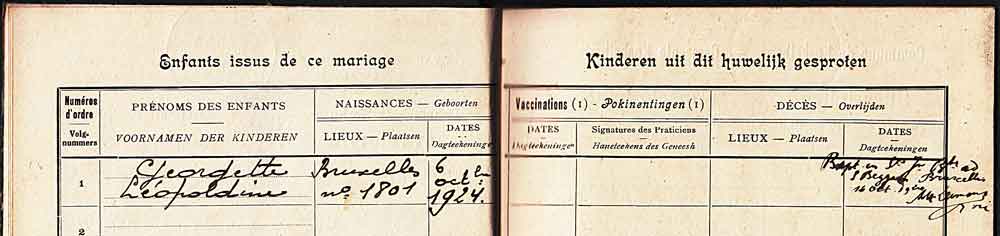 Enfants issus de ce mariage
Kinderen uit dit huwelijk gesproten
Numéros d'ordre
Volg-nummers
PRÉNOMS DES ENFANTS
VOORNAMEN DER KINDEREN
NAISSANCES — Geboorten
LIEUX — Plaatsen
DATES
Dagteekeningen
Vaccinations (1) - Pokinentingen (1)
DATES
Dagteekeningen
Signatures des Praticiens
Hanteekens des Geneesh
DÉCÈS — Overlijden
LIEUX — Plaatsen
DATES
Dagteekeningen
1
Georgette
Léopoldine
Bruxelles
nº 1801
6
oct.
1924.
Bapt. in
Bruxelles
16 oct.
2